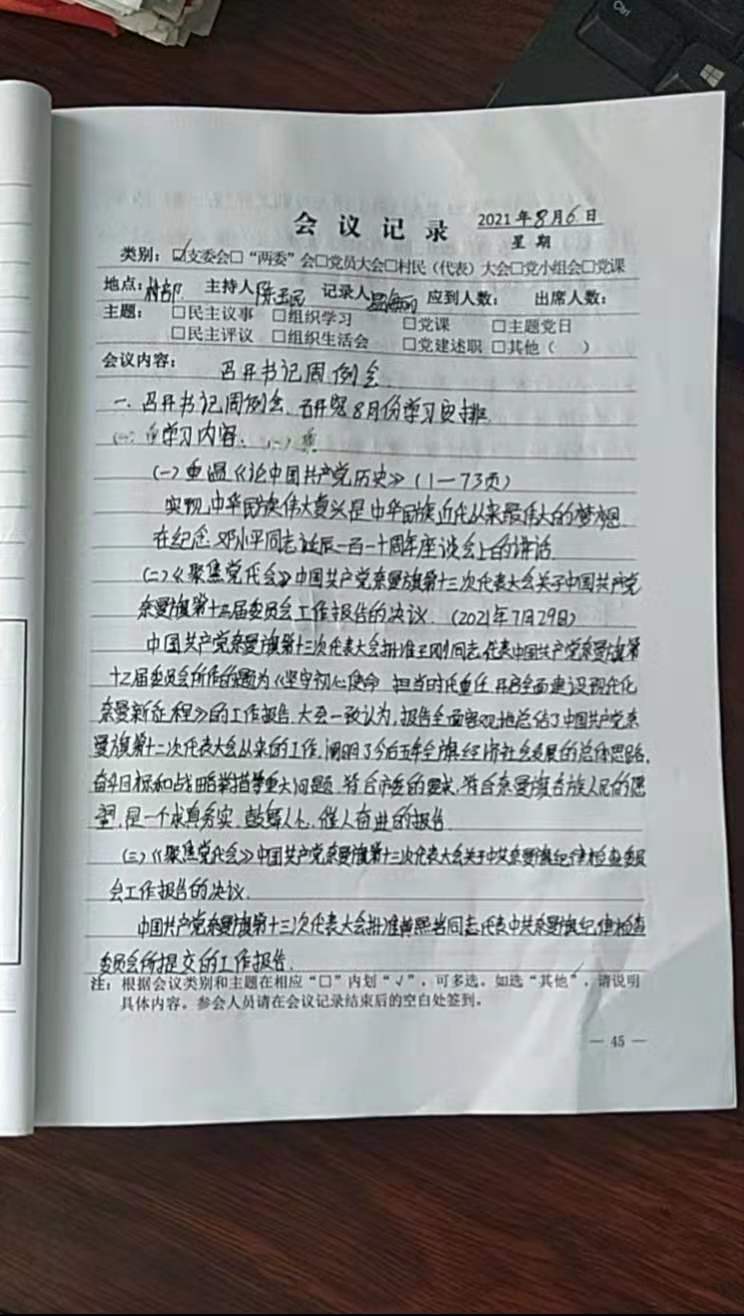 Ctrl
会议记录 2021年8月6日
星期
类别：☑支委会□“两委”会□党员大会□村民（代表）大会□党小组会□党课
地点：村部 主持人 陈玉民 记录人 应到人数： 出席人数：
主题： □民主议事 □组织学习 □党课 □主题党日
□民主评议 □组织生活会 □党建述职 □其他（ ）
会议内容：
召开书记周例会
一、召开书记周例会、研究8月份学习安排
学习内容、
(一)重温《论中国共产党历史》(1—73页)
实现中华民族伟大复兴是中华民族近代以来最伟大的梦想
在纪念邓小平同志诞辰一百一十周年座谈会上的讲话
(二)《聚焦党代会》中国共产党奈曼旗第十三次代表大会关于中国共产党
奈曼旗第十二届委员会工作报告的决议.(2021年7月29日)
中国共产党奈曼旗第十三次代表大会批准王刚同志代表中国共产党奈曼旗第
十二届委员会所作的题为《坚守初心使命 担当时代重任 开启全面建设现代化
奈曼新征程》的工作报告.大会一致认为,报告全面客观地总结了中国共产党奈
曼旗第十二次代表大会从来的工作,阐明了今后五年全旗经济社会发展的总体思路,
奋斗目标和战略举措等重大问题.符合市委的要求,符合奈曼旗各族人民的愿
望,是一个求真务实、鼓舞人心、催人奋进的报告
(三)《聚焦党代会》中国共产党奈曼旗第十三次代表大会关于中共奈曼旗纪律检查委员
会工作报告的决议.
中国共产党奈曼旗第十三次代表大会批准 同志代表中共奈曼旗纪律检查
委员会所提交的工作报告.
注：根据会议类别和主题在相应“□”内划“√”，可多选。如选“其他”，请说明
具体内容。参会人员请在会议记录结束后的空白处签到。
— 45 —